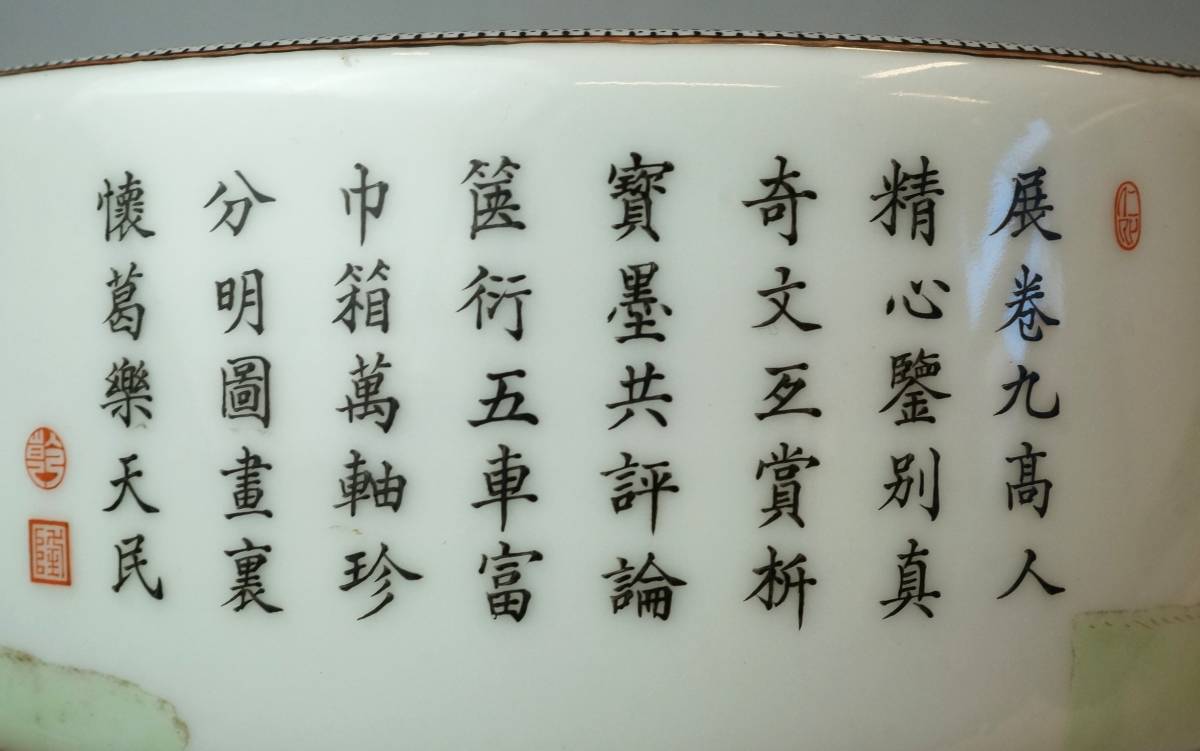 展卷九高人
精心鑒別真
奇文互賞析
寶墨共評論
篋衍五車富
巾箱萬軸珍
分明圖畫裏
懷葛樂天民
乾
隆